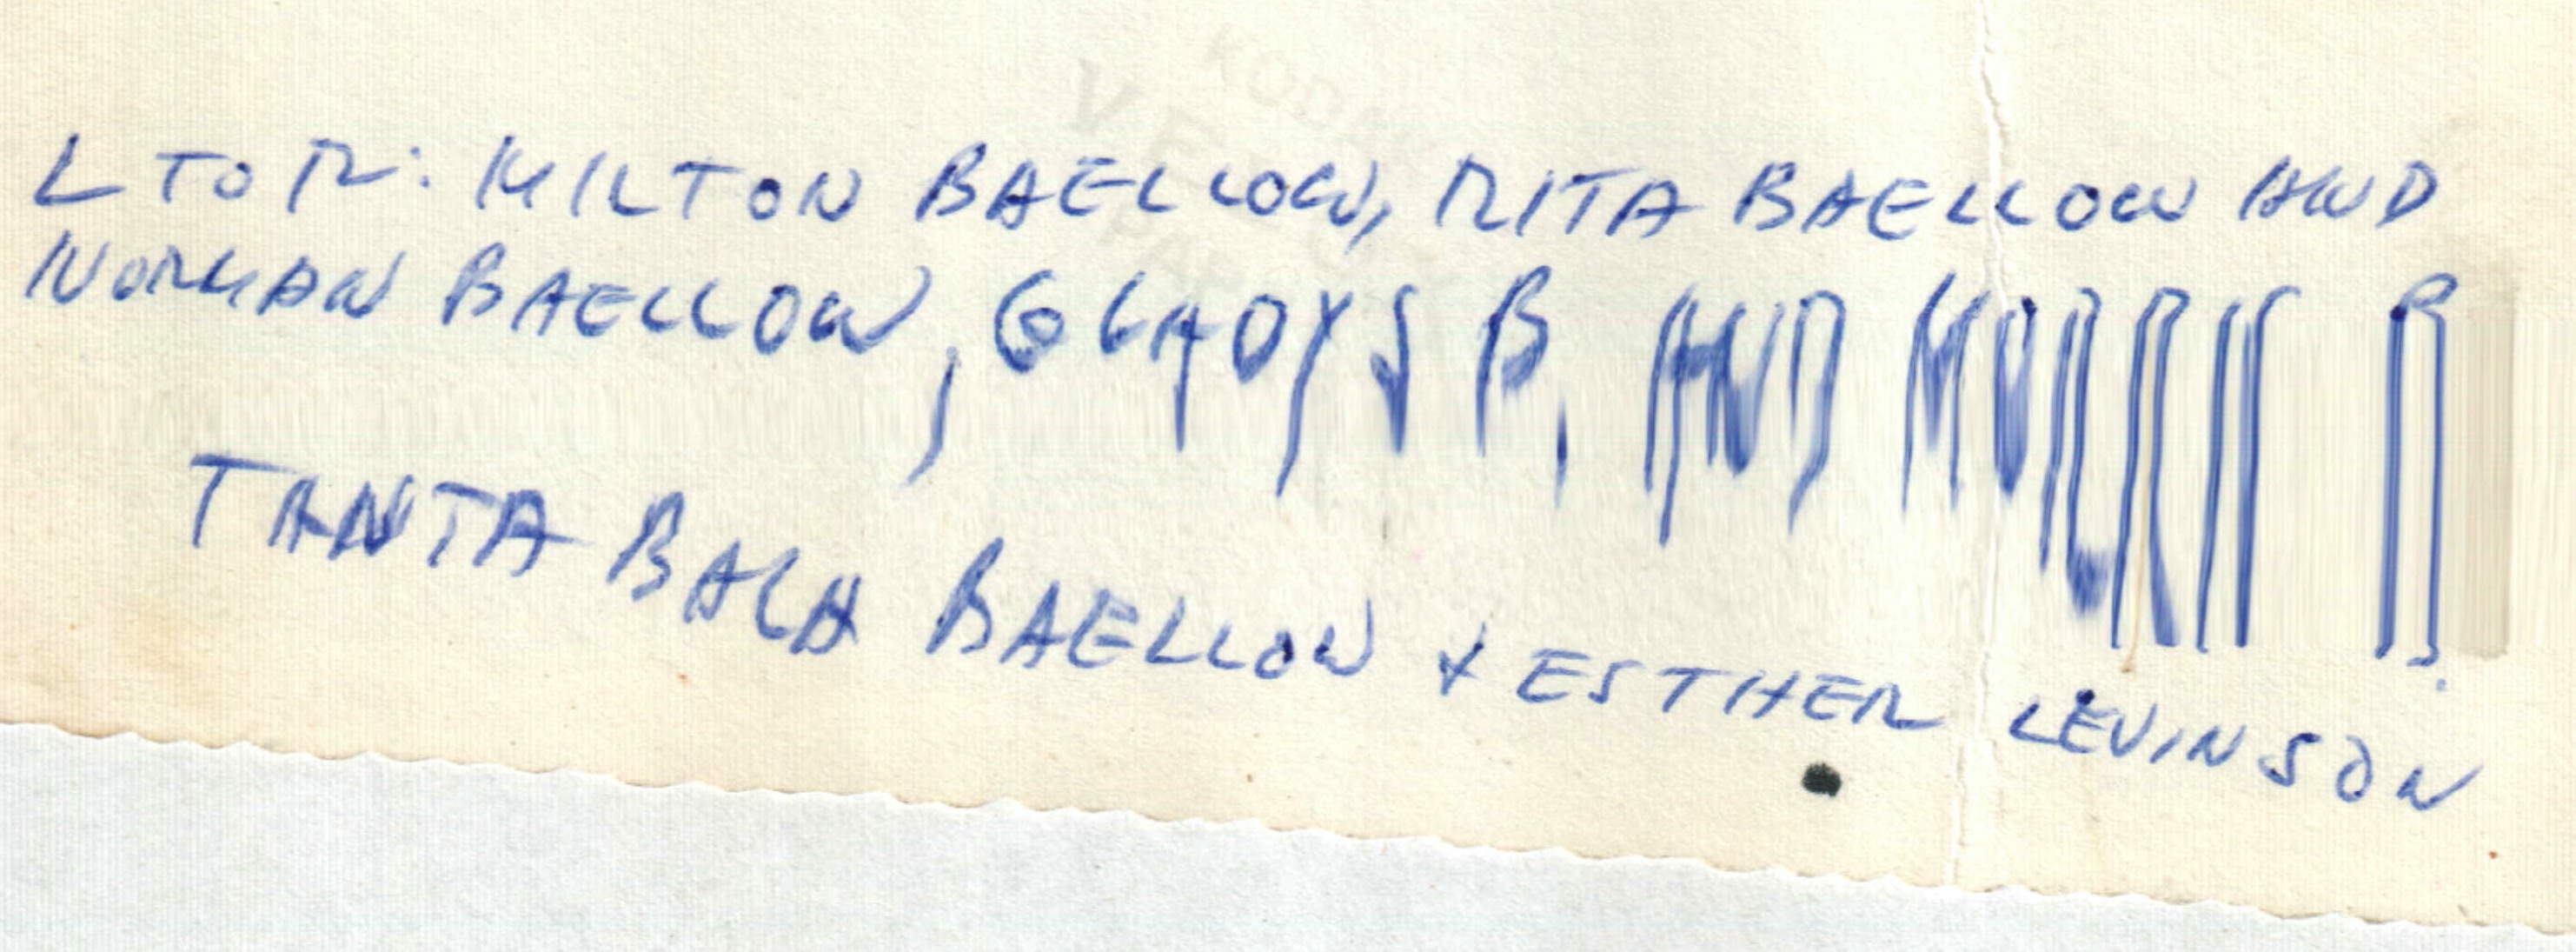 L TO R: MILTON BAELLOW, RITA BAELLOW AND
NORMAN BAELLOW, GLADYS B. AND MORRIS B.
TANTA BALA BAELLOW + ESTHER LEVINSON